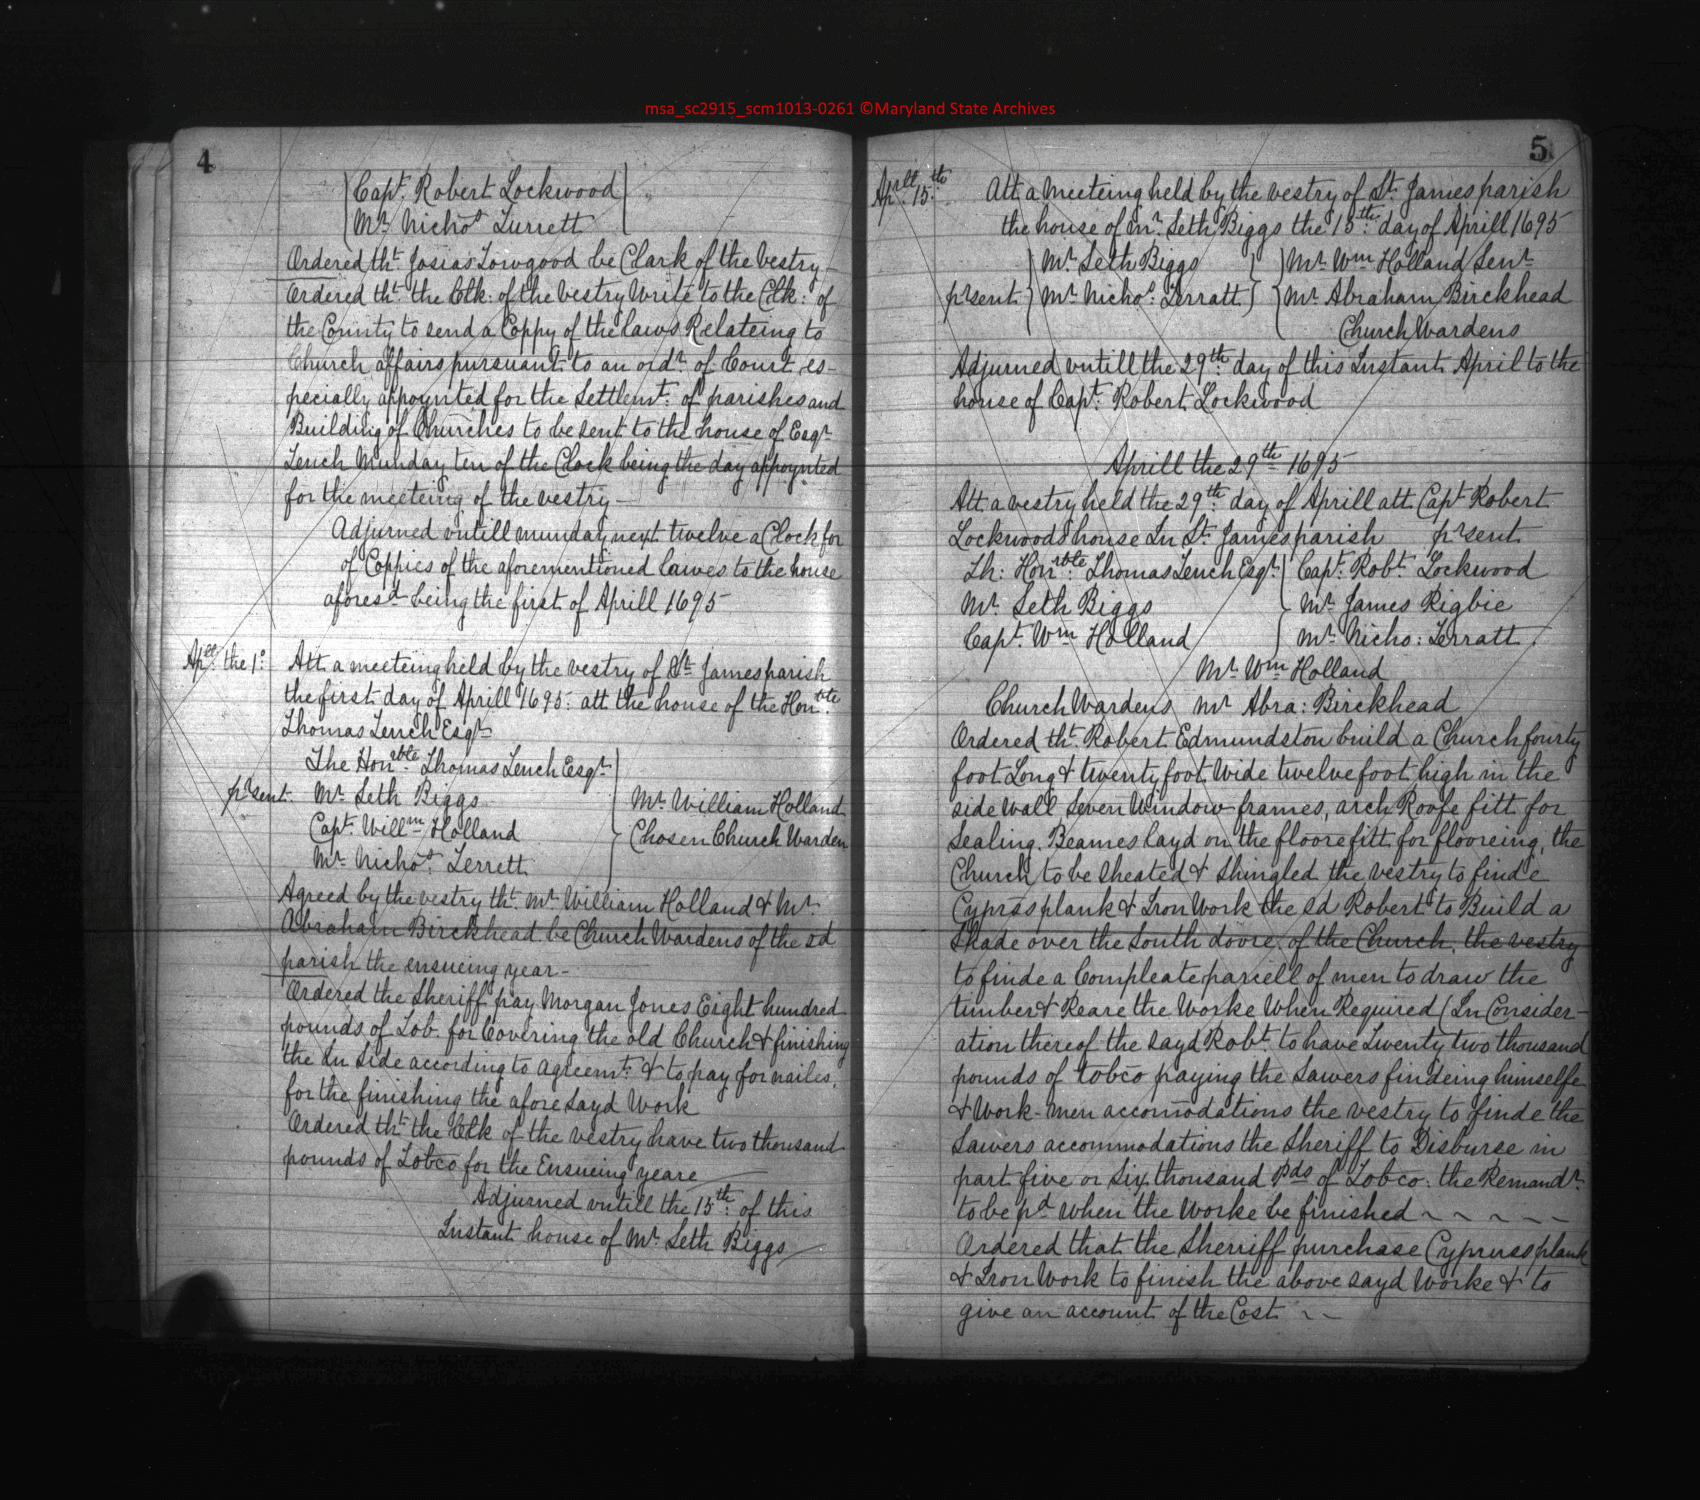 msa_sc2915_scm1013-0261 ©Maryland State Archives
4
Capt. Robert Lockwood
Mr. Nichos Turrett
Ordered tht. Josias Towgood be Clark of the Vestry
Ordered tht. the Clk: of the Vestry Write to the Clk: of
the County to send a Coppy of the laws Relateing to
Church affairs pursuant to an ordr. of Court es-
pecially appoynted for the Settlemt: of parishes and
Building of Churches to be sent to the house of Esqr.
Tench Munday ten of the Clock being the day appoynted
for the meeteing of the vestry—
Adjurned untill munday next twelve a Clock for
of Coppies of the aforementioned lawes to the house
aforesd. being the first of Aprill 1695
Apll. the 1o: Att a meeteing held by the vestry of St. James parish
the first day of Aprill 1695: att the house of the Honrble.
Thomas Tench Esqr.
The Honrble. Thomas Tench Esqr.
prsent. Mr. Seth Biggs Mr. William Holland
Capt. Willm. Holland Chosen Church Warden
Mr. Nichos. Terrett
Agreed by the vestry tht. Mr. William Holland & Mr.
Abraham Birckhead be Church Wardens of the sd
parish the ensueing year—
Ordered the Sheriff pay Morgan Jones Eight hundred
pounds of Tob. for Covering the old Church & finishing
the In Side according to agreemt: & to pay for nailes,
for the finishing the afore sayd Work
Ordered tht. the Clk of the vestry have two thousand
pounds of Tobco for the Ensueing yeare
Adjurned untill the 15th: of this
Instant house of Mr. Seth Biggs
5
Aprll. 15th: Att a meeteing held by the vestry of St. James parish
the house of Mr. Seth Biggs the 15th: day of Aprill 1695
Mr. Seth Biggs Mr. Wm Holland Senr.
prsent. Mr. Nichos: Terratt. Mr. Abraham Birckhead
Church Wardens
Adjurned untill the 29th: day of this Instant April to the
house of Capt. Robert Lockwood
Aprill the 29th 1695
Att a vestry held the 29th: day of Aprill att Capt. Robert
Lockwoods house In St. James parish prsent.
Th: Honrble: Thomas Tench Esqr. Capt. Robt. Lockwood
Mr. Seth Biggs Mr. James Rigbie
Capt. Wm Holland Mr. Nicho: Terratt
Mr. Wm Holland
Church Wardens Mr. Abra: Birckhead
Ordered tht. Robert Edmundston build a Church fourty
foot Long & twenty foot Wide twelve foot high in the
side wall Seven Window frames, arch Roofe fitt for
Sealing, Beames layd on the floore fitt for flooreing, the
Church to be Sheated & Shingled the vestry to finde
Cyprss plank & Iron Work the sd Robert. to Build a
Shade over the South doore, of the Church, the vestry
to finde a Compleate parcell of men to draw the
timber & Reare the Worke When Required (In Consider-
ation thereof the sayd Robt. to have Twenty two thousand
pounds of tobco paying the Sawers findeing himselfe
& Work-men accomodations the vestry to finde the
Sawers accommodations the Sheriff to Disburse in
part five or Six thousand Pds of Tobco: the Remandr.
to be pd when the Worke be finished ~ ~ ~ ~ ~
Ordered that the Sherriff purchase Cypruss plank
& Iron Work to finish the above sayd Worke & to
give an account of the Cost ~ ~